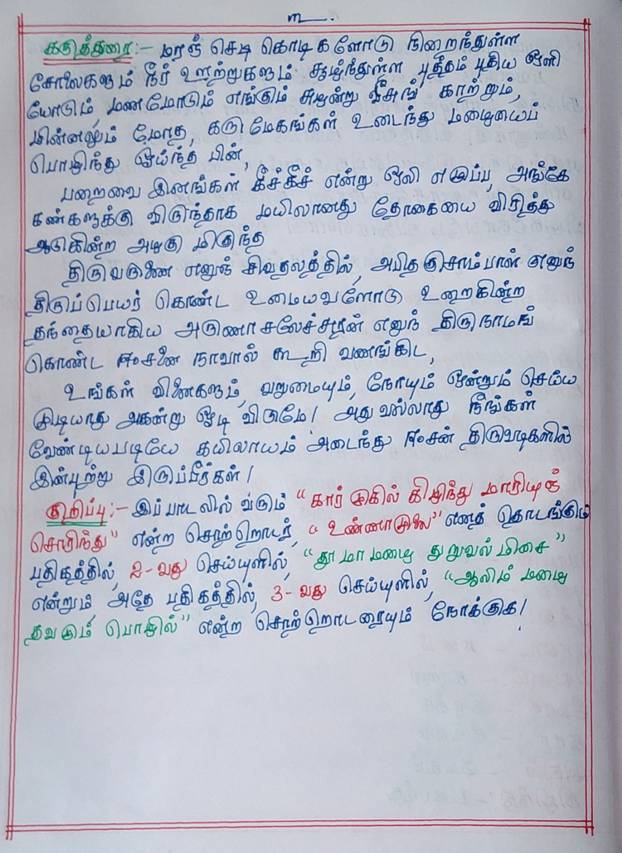 ௩.
கருத்துரை:- மரஞ் செடி கொடிகளோடு நிறைந்துள்ள
சோலைகளும் நீர் ஊற்றுகளும் சூழ்ந்துள்ள புதிதும் புதிய ஒளி
யோடும் மணமோடும் எங்கும் சுழன்று வீசுங் காற்றும்,
மின்னலும் மோத, கருமேகங்கள் உடைந்து மழையைப்
பொழிந்து ஓய்ந்த பின்,
பறைவை இனங்கள் கீச்கீச் என்று ஒலி எழுப்ப, அங்கே
கண்களுக்கு விடுந்தாக மயிலானது தோகையை விரித்து
ஆடுகின்ற அழகு மிகுந்த
திருவருணை எனுஞ் சிவதலத்தில், அபிதகுசாம்பாள் எனுந்
திருப்பெயர் கொண்ட உமையவளோடு உறைகின்ற
தந்தையாகிய அருணாசலேச்சுரன் எனுந் திருநாமங்
கொண்ட ஈசனை நாவால் கூறி வணங்கிட,
உங்கள் வினைகளும், வறுமையும், நோயும் ஒன்றும் செய்ய
முடியாது அகன்று ஓடி விடுமே! அதுவல்லாது நீங்கள்
வேண்டியபடியே கயிலாயம் அடைந்து ஈசன் திருவடிகளில்
இன்புற்று இருப்பீர்கள்!
குறிப்பு:- இப்பாடலில் வரும் "கார் முகில் கிழிந்து மாரியுஞ்
சொரிந்து" என்ற சொற்றொடர், "உண்ணாமுலை" எனத் தொடங்கும்
பதிகத்தில், 2-வது செய்யுளில், "தூமாமழை துறுவல்மிசை"
என்றும், அதே பதிகத்தில், 3-வது செய்யுளில், "ஆலிம் மழை
தவழும் பொழில்" என்ற சொற்றொடரையும் நோக்குக!